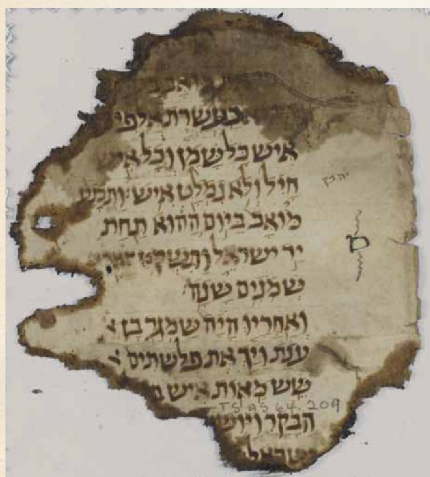 מואב
כעשרת אלפי
איש כל שמן וכל איש
חיל ולא נמלט איש ׃ ותכנע
מואב ביום ההוא תחת
יד ישראל ותשקט הארץ
שמנים שנה׃
ואחריו היה שמגר בן
ענת ויך את פלשתים
שש מאות איש
T-S AS 64.209
הבקר ויוש
ישראל